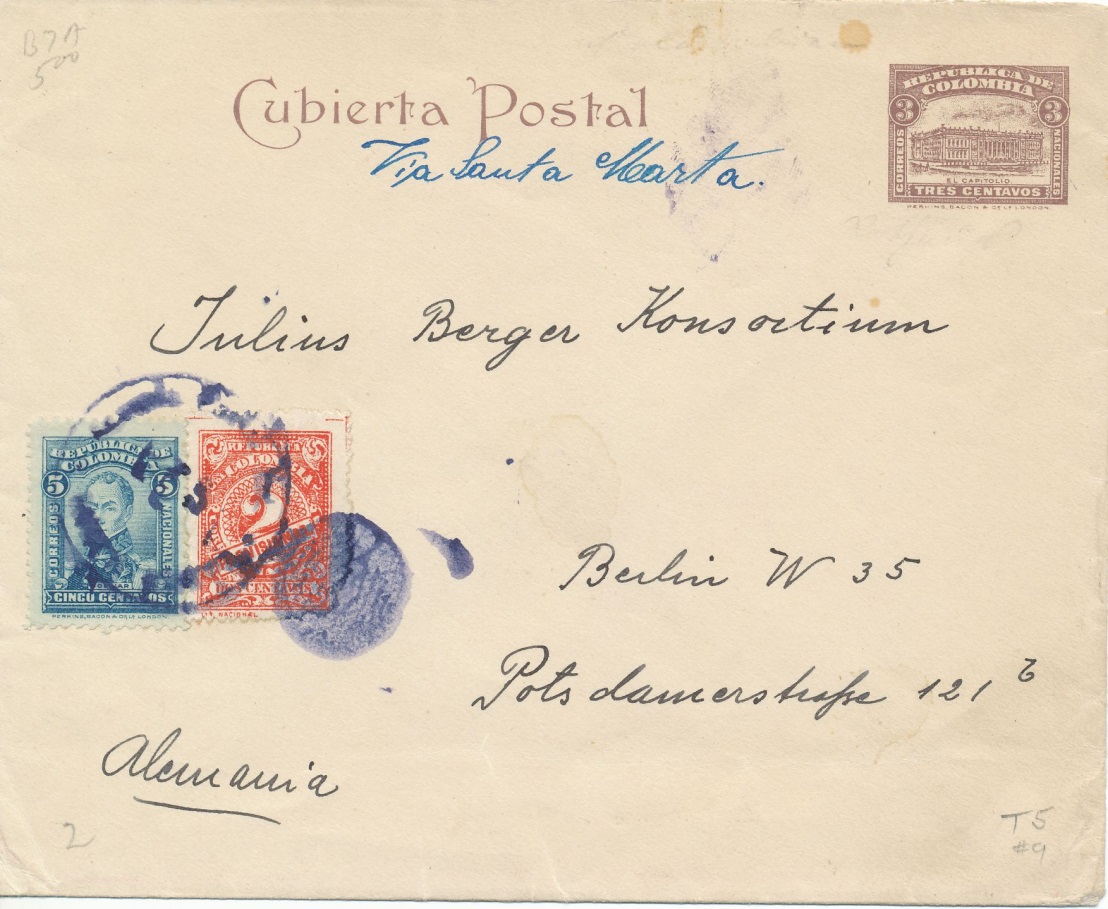 B7A
5.00
Cubierta Postal
Via Santa Marta.
REPUBLICA DE
COLOMBIA
3 3
CORREOS NACIONALES
EL CAPITOLIO
TRES CENTAVOS
PERKINS, BACON & Cº Lº LONDON.
Julius Berger Konsortium
REPÚBLICA DE
COLOMBIA
5 5
CORREOS NACIONALES
CINCO CENTAVOS
PERKINS, BACON & Cº Lº LONDON.
REPUBLICA
COLOMBIA
2
LIT. NACIONAL
Berlin W 35
Potsdamerstraße 121 b
Alemania
2
T5
#9